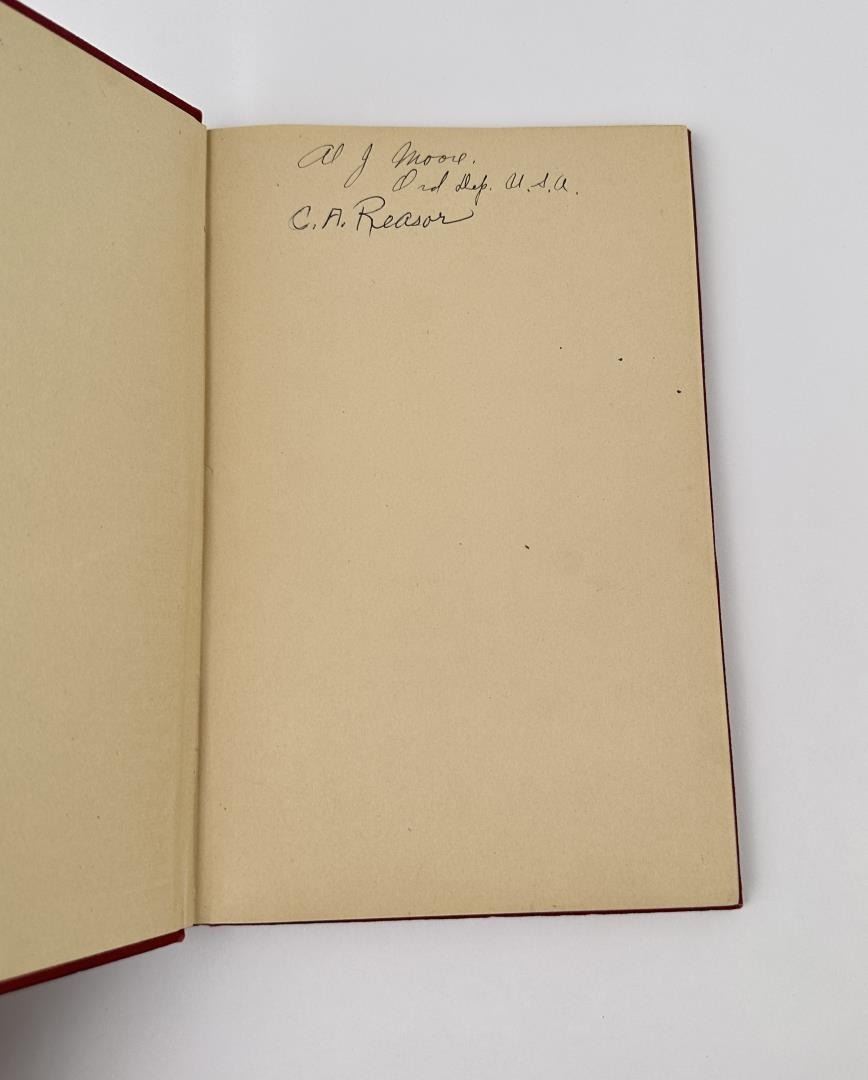 Al J Moore.
Ord Dep. U.S.A.
C.A. Reasor